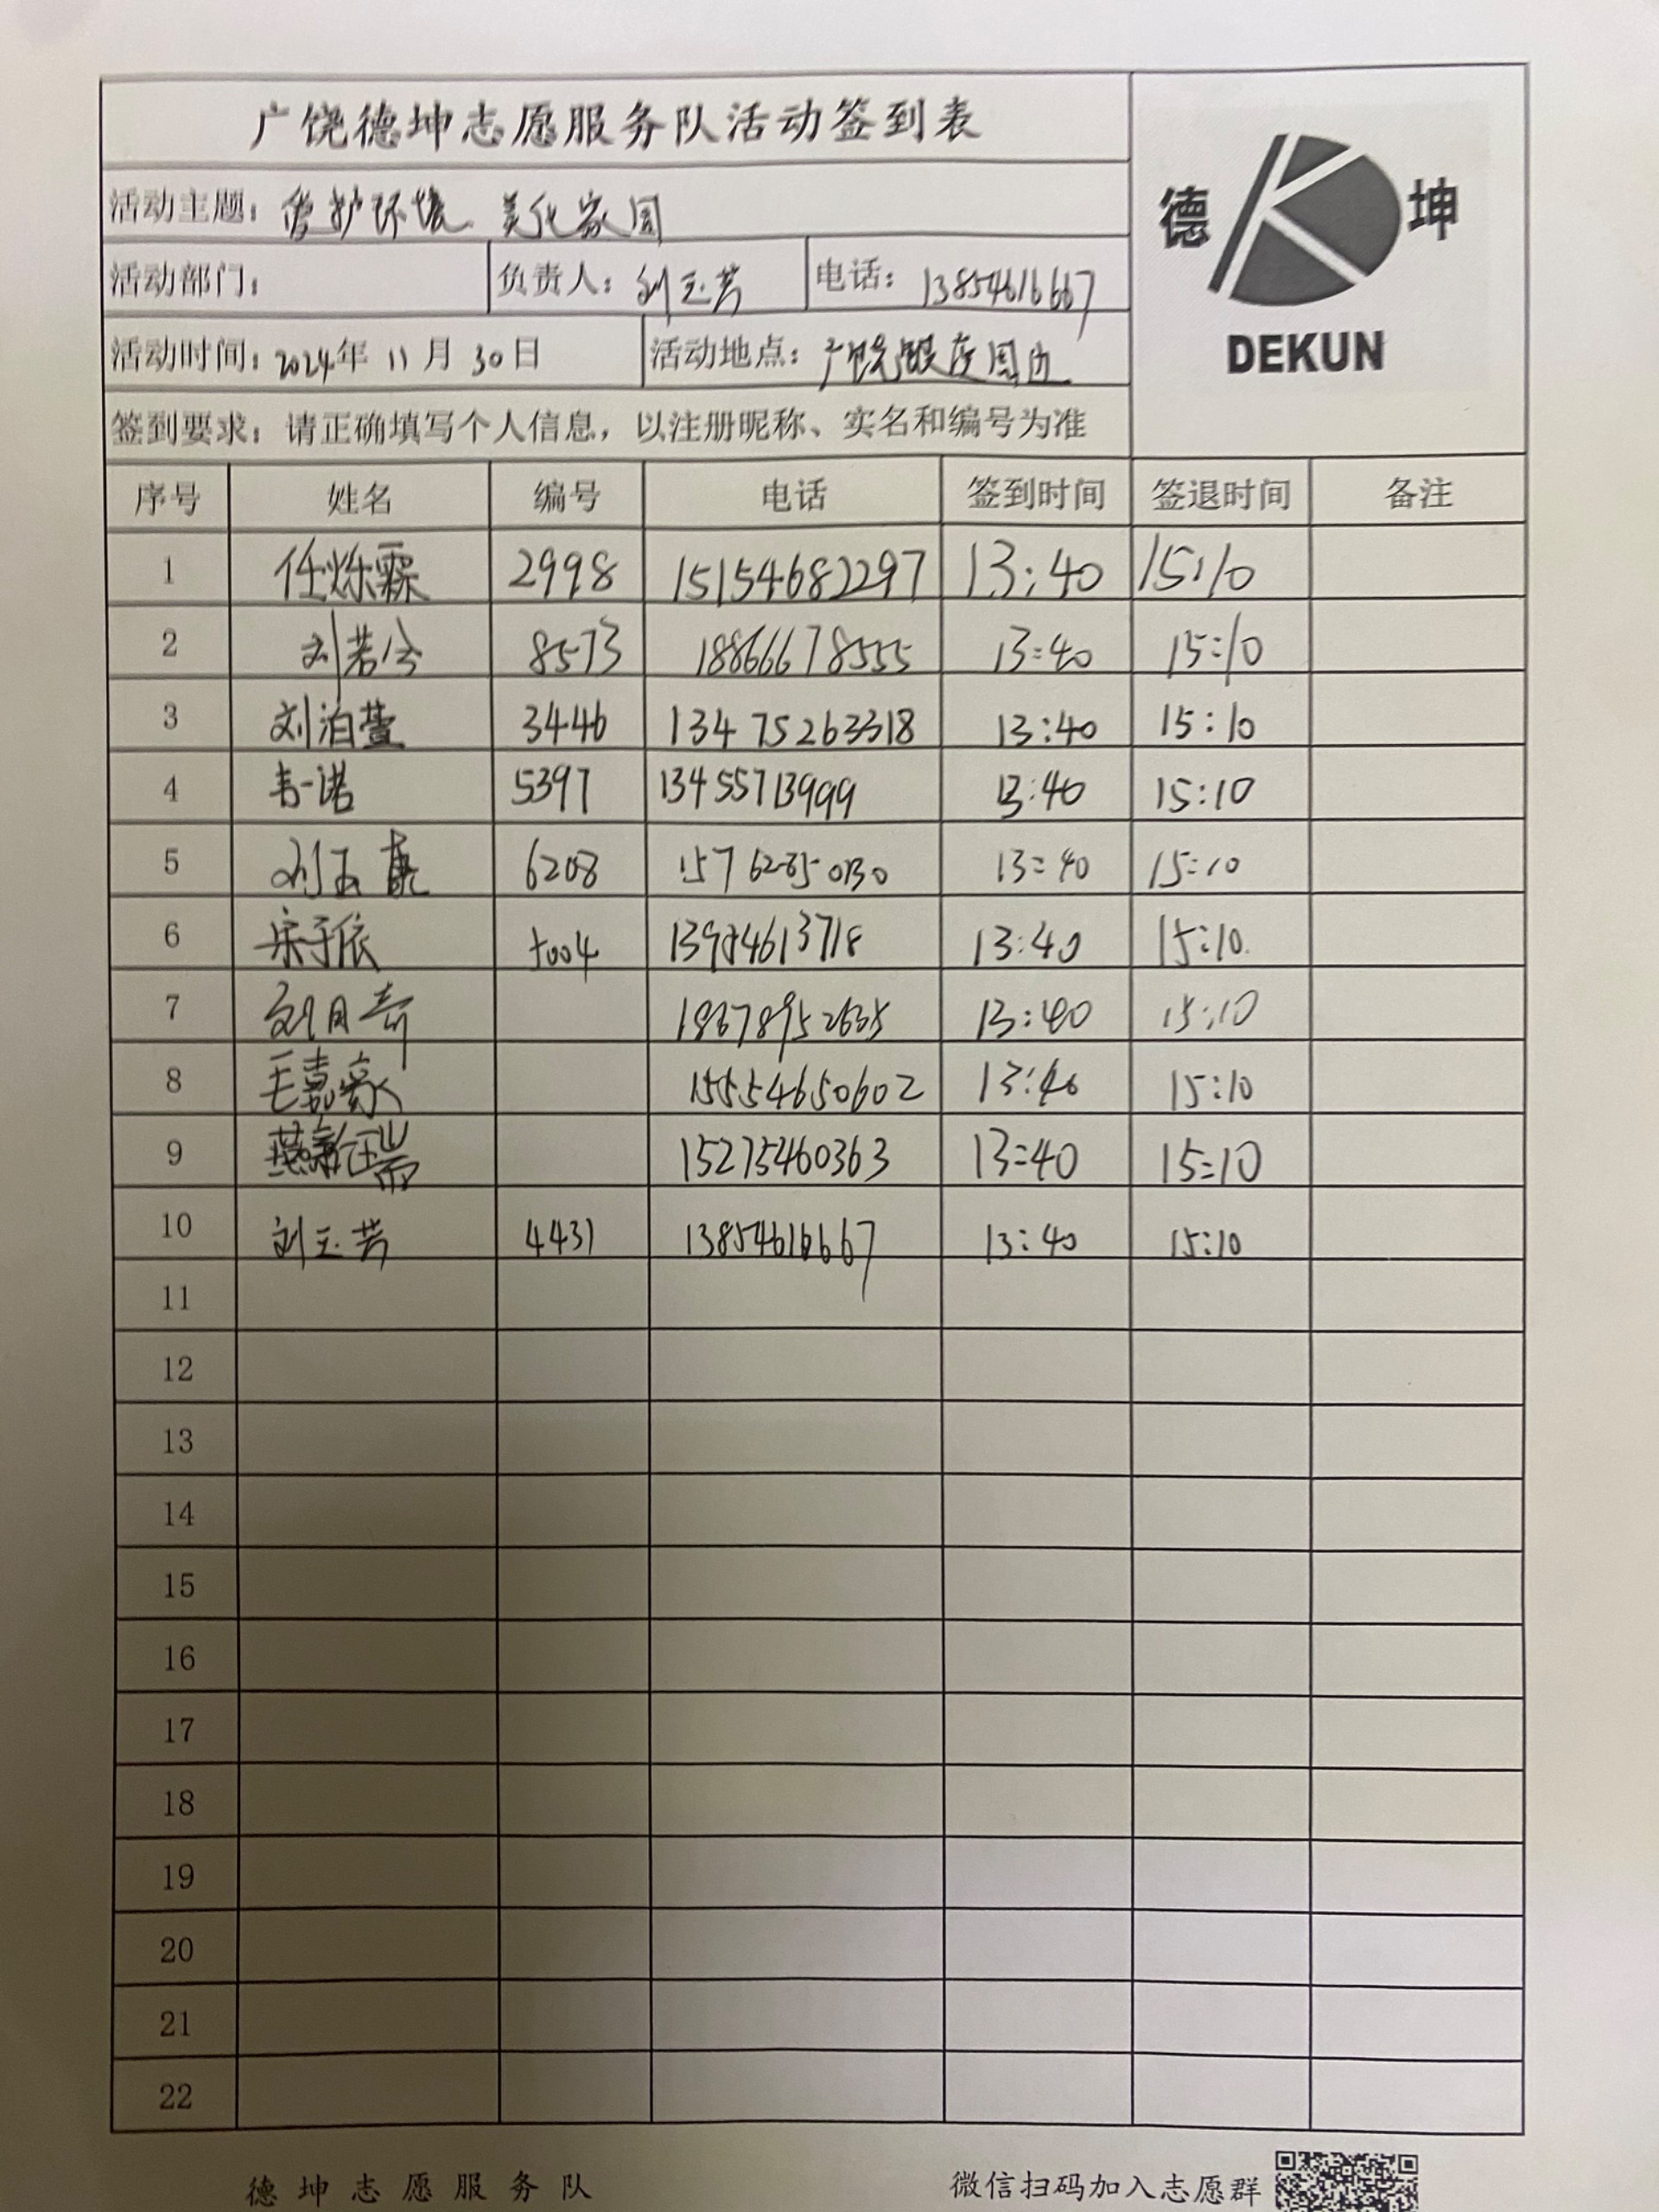 广饶德坤志愿服务队活动签到表
德 坤
DEKUN
活动主题：爱护环境 美化家园
活动部门： 负责人：刘玉芳 电话：13854616667
活动时间：2024年 11 月 30 日 活动地点：广饶 周边
签到要求：请正确填写个人信息，以注册昵称、实名和编号为准
序号 姓名 编号 电话 签到时间 签退时间 备注
1 任烁霖 2998 15154682297 13:40 15:10
2 刘若 8573 18866678555 13:40 15:10
3 刘泊萱 3446 13475263318 13:40 15:10
4 韦一诺 5397 13455713999 13:40 15:10
5 刘 6208 13:40 15:10
6 宋于依 13:40 15:10
7 刘月奇 13:40 15:10
8 毛嘉豪 15554650602 13:40 15:10
9 15275460363 13:40 15:10
10 刘玉芳 4431 13854616667 13:40 15:10
11
12
13
14
15
16
17
18
19
20
21
22
德坤志愿服务队 微信扫码加入志愿群